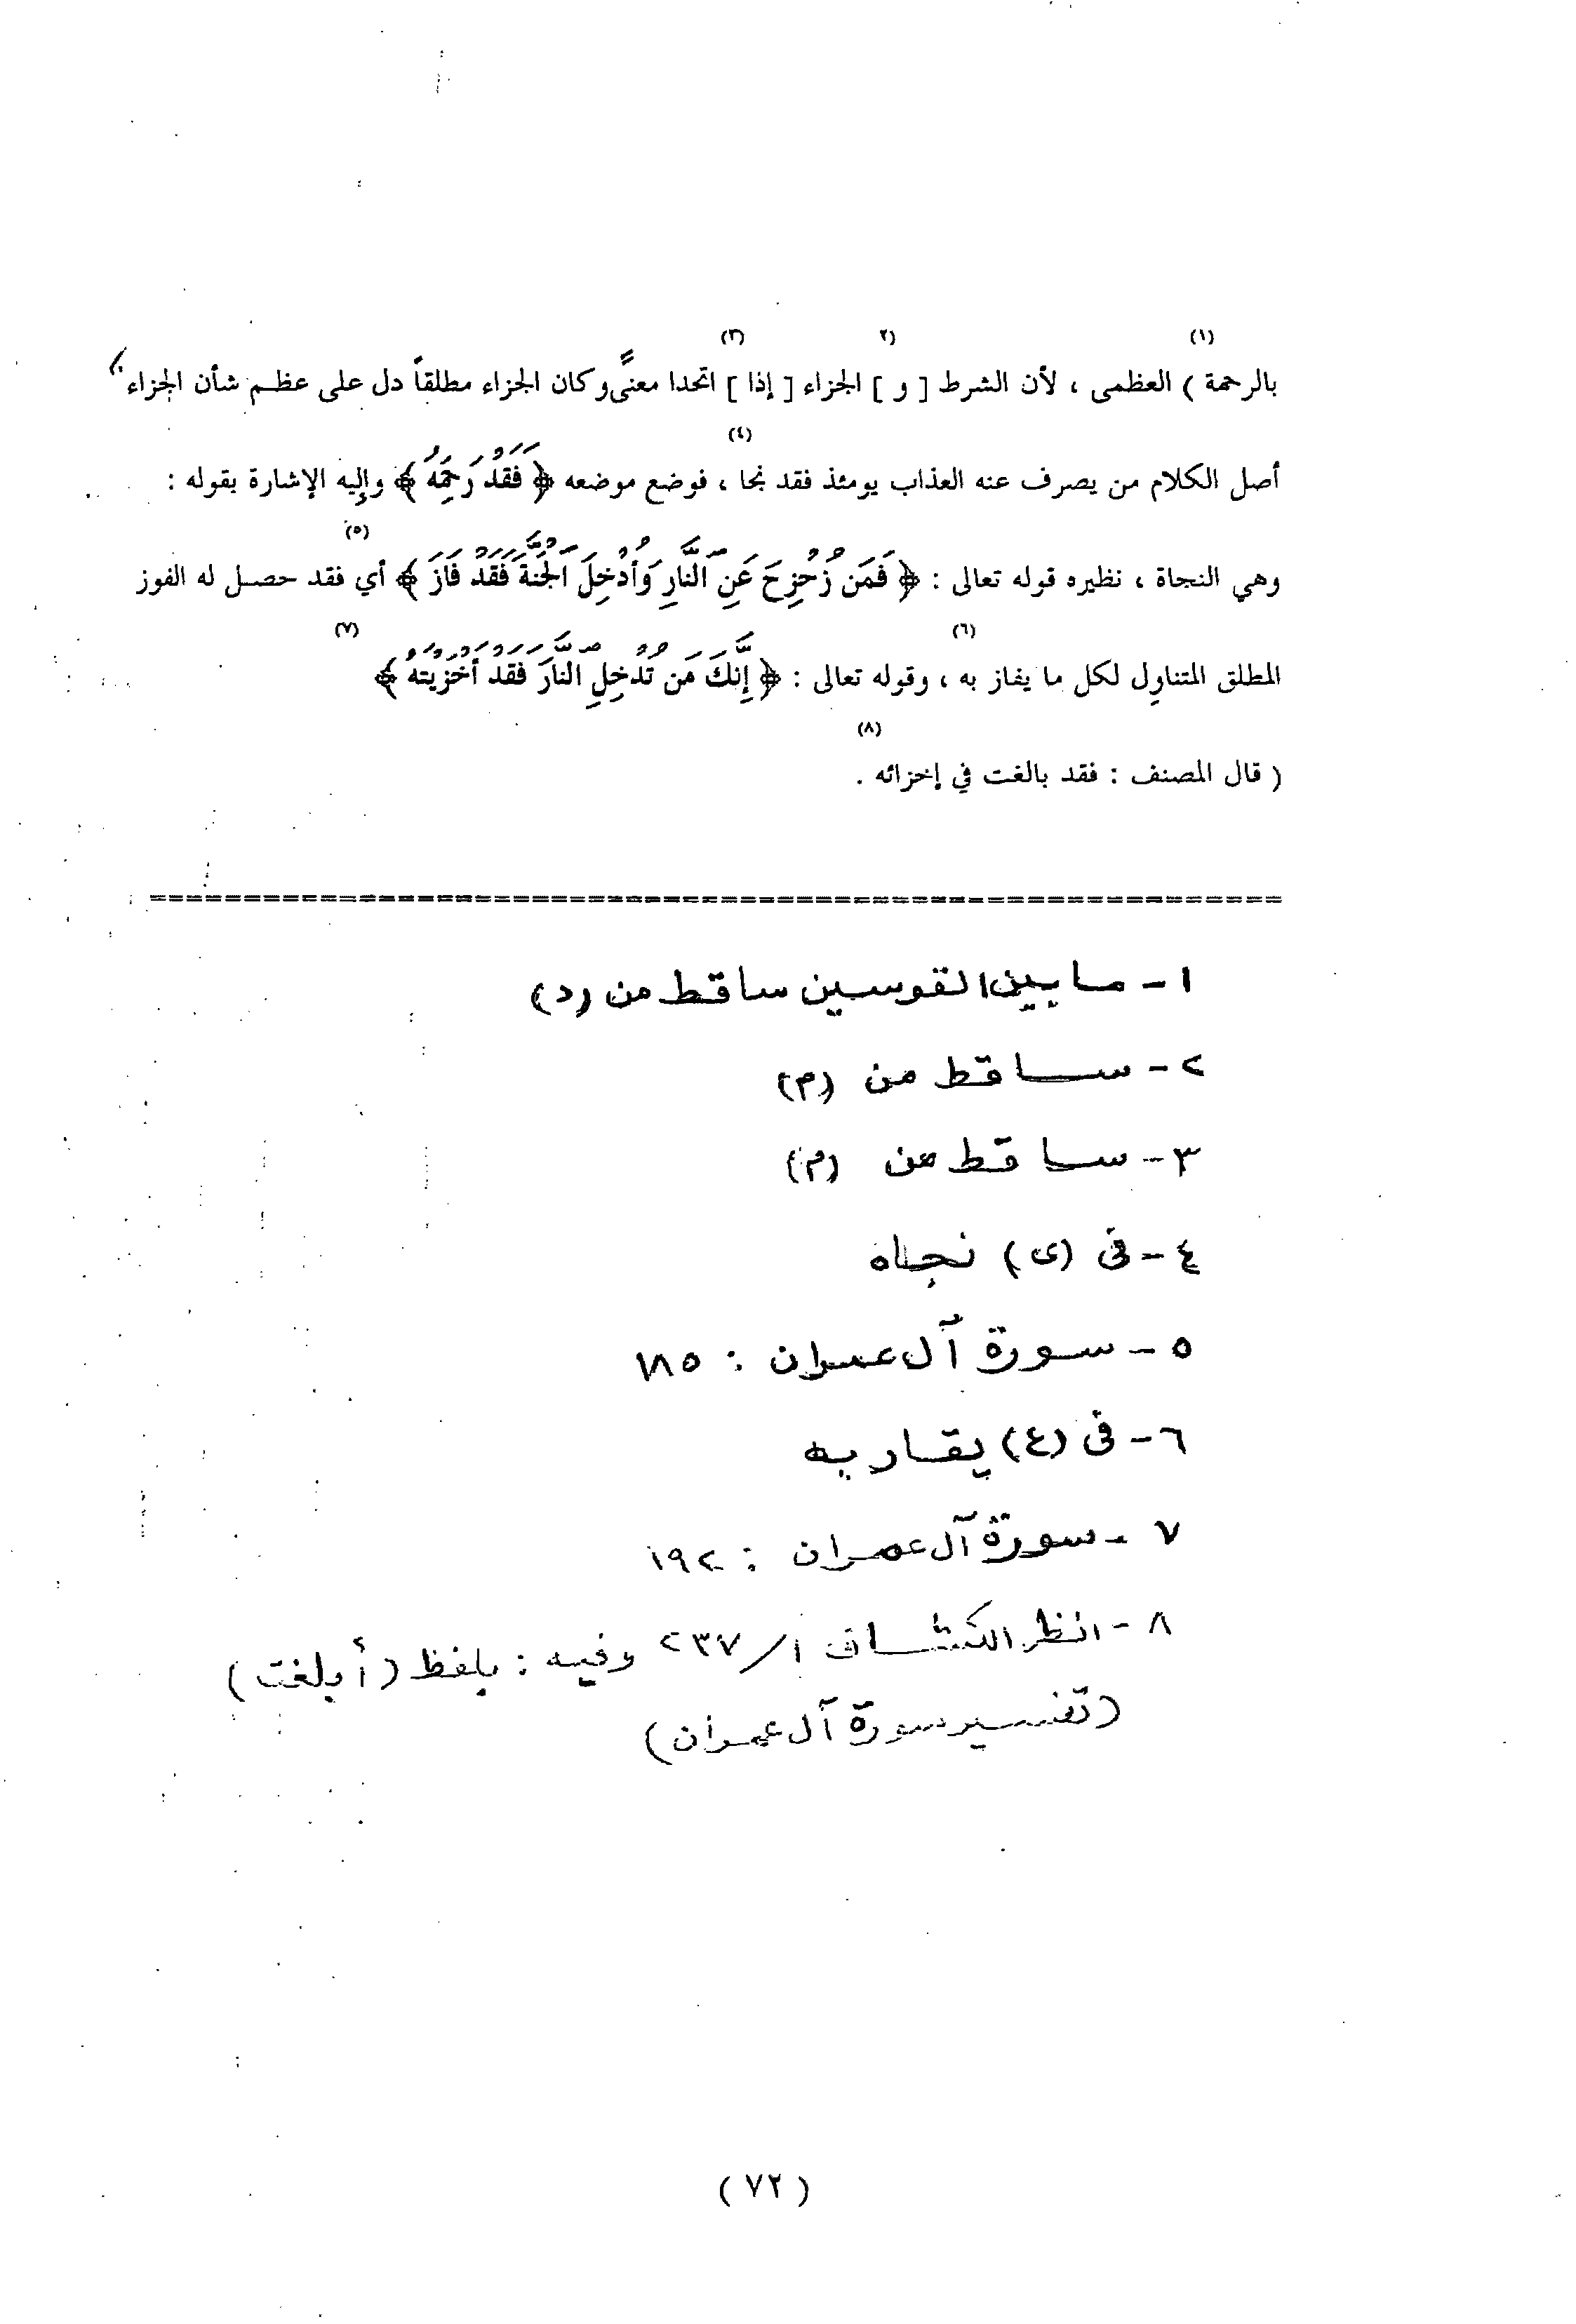 (١) (٢ (٣)
بالرحمة ) العظمى ، لأن الشرط [ و ] الجزاء [ إذا ] اتحدا معنىً وكان الجزاء مطلقاً دل على عظم شأن الجزاء
(٤)
أصل الكلام من يصرف عنه العذاب يومئذ فقد نجا ، فوضع موضعه ﴿ فَقَدْ رَحِمَهُ ﴾ وإليه الإشارة بقوله :
(٥)
وهي النجاة ، نظيره قوله تعالى : ﴿ فَمَن زُحْزِحَ عَنِ النَّارِ وَأُدْخِلَ الْجَنَّةَ فَقَدْ فَازَ ﴾ أي فقد حصل له الفوز
(٦) (٧)
المطلق المتناول لكل ما يفاز به ، وقوله تعالى : ﴿ إِنَّكَ مَن تُدْخِلِ النَّارَ فَقَدْ أَخْزَيْتَهُ ﴾
(٨)
( قال المصنف : فقد بالغت في إخزائه .
١ - ما بين القوسين ساقط من (د)
٢ - ساقط من (م)
٣ - ساقط من (م)
٤ - فى (ى) نجاه
٥ - سورة آل عمران : ١٨٥
٦ - فى (ع) يقاربه
٧ - سورة آل عمران : ١٩٢
٨ - انظر الكشاف ١/٢٣٧ وفيه : بلفظ (أبلغت)
(تفسير سورة آل عمران)
( ٧٢ )